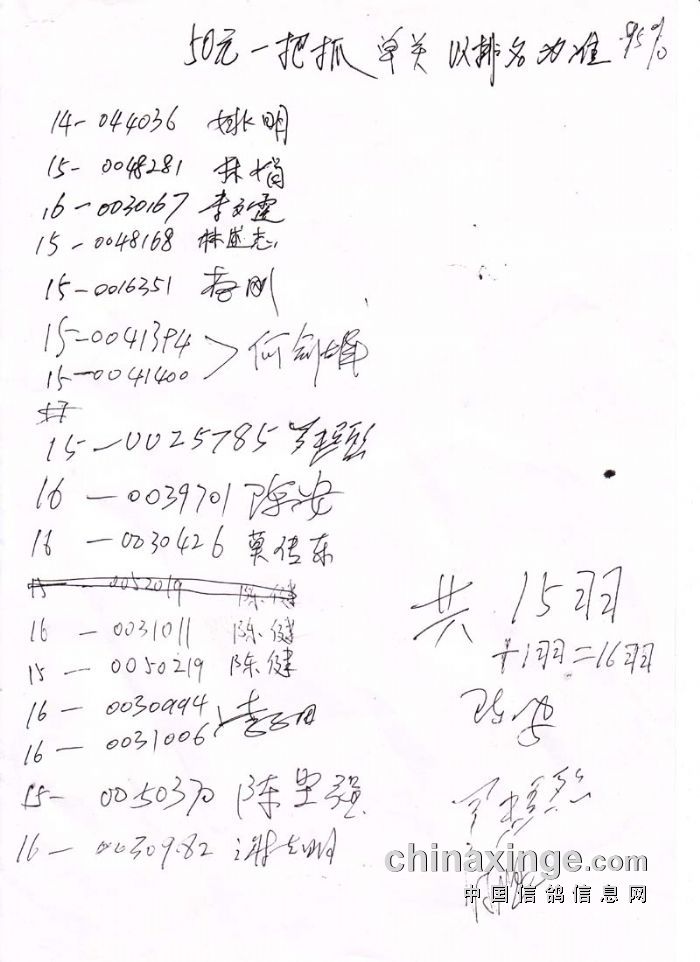 50元一把抓 单关 以排名为准 95%
14-044036 姚明
15-0048281 林娟
16-0030167 李文霆
15-0048168 林述志
15-0016351 梅刚
15-0041394
15-0041400 何剑辉
15-0025785
16-0039701 陈安
16-0030426 莫传东
15-0052019 陈健
16-0031011 陈健
15-0050219 陈健
16-0030994
16-0031006
15-0050370 陈坚强
16-0030982 谢志明
共 15羽
+1羽=16羽
chinaxinge.com
中国信鸽信息网